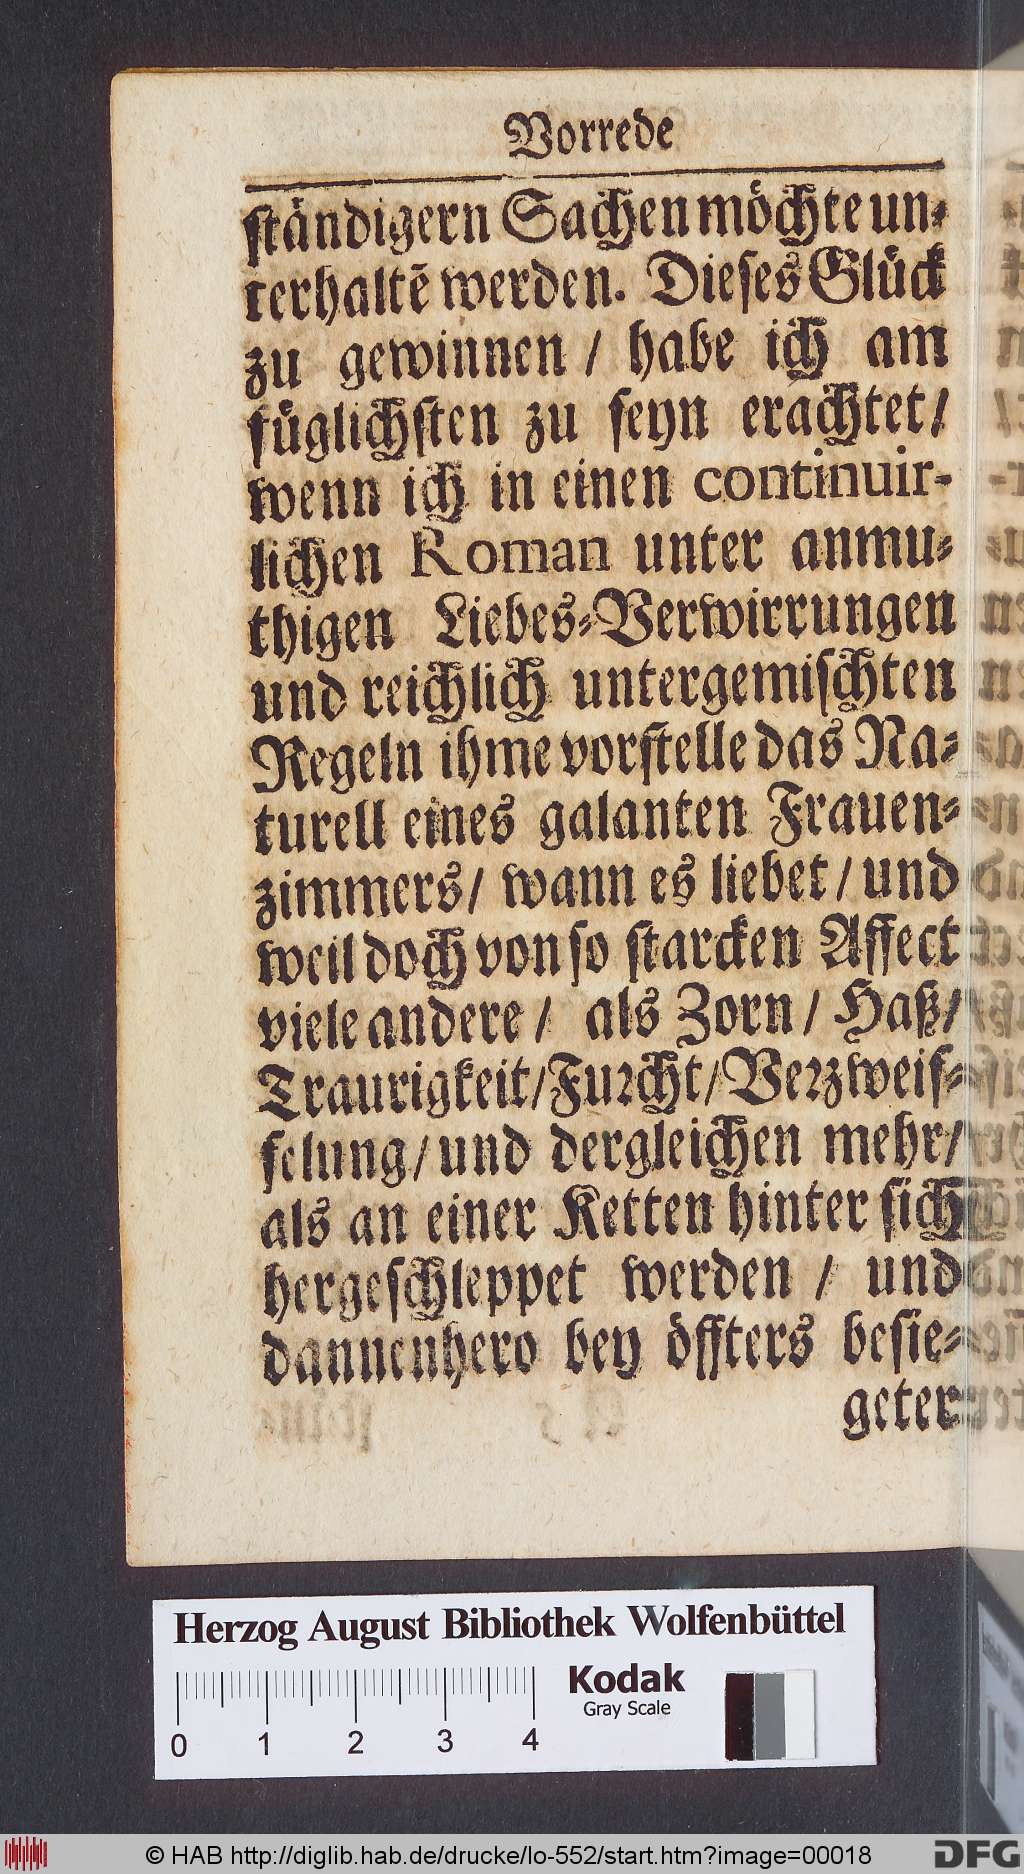 Vorrede
ständigern Sachen möchte un-
terhaltē werden. Dieses Glück
zu gewinnen / habe ich am
füglichsten zu seyn erachtet/
wenn ich in einen continuir-
lichen Roman unter anmu-
thigen Liebes-Verwirrungen
und reichlich untergemischten
Regeln ihme vorstelle das Na-
turell eines galanten Frauen-
zimmers/ wann es liebet / und
weil doch von so starcken Affect
viele andere / als Zorn / Haß/
Traurigkeit/Furcht/Verzweif-
felung/und dergleichen mehr/
als an einer Ketten hinter sich
hergeschleppet werden / und
dannenhero bey öffters besie-
geter
Herzog August Bibliothek Wolfenbüttel
Kodak
Gray Scale
0 1 2 3 4
© HAB http://diglib.hab.de/drucke/lo-552/start.htm?image=00018
DFG